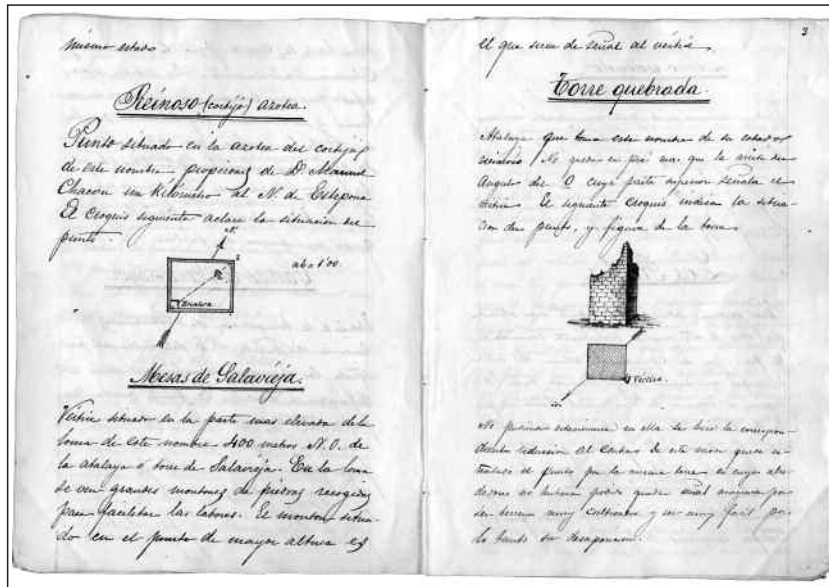 mismo estado
Reinoso (cortijo) azotea.
Punto situado en la azotea del cortijo
de este nombre propiedad de D. Manuel
Chacon un kilómetro al N. de Estepona
El croquis siguiente aclara la situacion del
punto.
N.
ab = 1'00
Escalera
Mesas de Salavieja.
Vértice situado en la parte mas elevada de la
loma de este nombre 400 metros N.O. de
la atalaya ó torre de Salavieja. En la loma
se ven grandes montones de piedras recogidas
para facilitar las labores. El monton situa-
do en el punto de mayor altura es
3
el que sirve de señal al vértice.
Torre quebrada.
Atalaya que toma este nombre de su estado
No queda en pié mas que la
angulo del O cuya parte superior señala el
vértice El siguiente croquis indica la situa-
cion del punto, y figura de la torre.
Vértice.
No en ella se hizo la correspon-
diente reduccion al centro
el punto por la misma torre en cuyos alre-
dedores no hubiera podido quedar señal ninguna por
ser terreno muy cultivado y ser muy facil por
lo tanto su desaparicion.